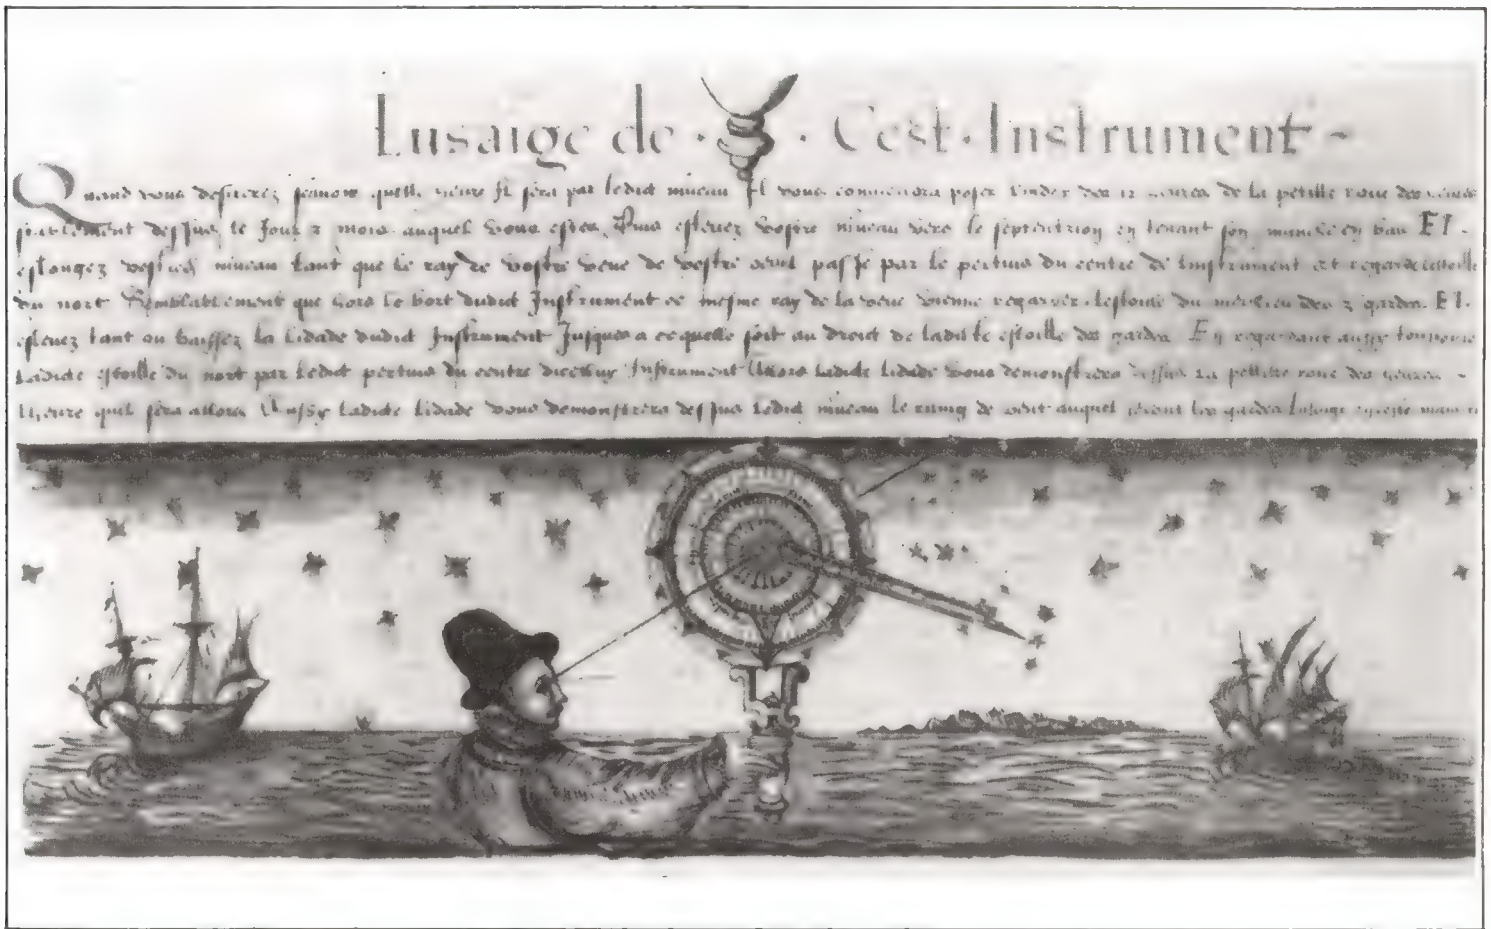 Lusaige de · · Cest · Instrument ~
Quand vous desirerez scauoir quelle heure Il sera par ledict niueau Il vous conuiendra poser lindex des 12 heures de la petitte roue des heures
justement dessus le Jour & mois auquel vous estes, Puis esleuez vostre niueau vers le septentrion en tenant son manche en bas ET ·
eslongez vostredict niueau tant que le ray de vostre veue de vostre oeuil passe par le pertuis du centre de linstrument et regarde lestoille
du nort Semblablement que hors le bort dudict Instrument ce mesme ray de la veue vienne regarder lestoille du meillieu des 2 gardes. ET.
esleuez tant ou baissez la lidade dudict Instrument Jusques a ce quelle soit au droict de ladicte estoille des gardes En regardant aussy tousiours
Ladicte estoille du nort par ledict pertuis du centre dicelluy Instrument Alors ladicte lidade vous demonstrera dessus la petitte roue des heures ~
Lheure quil sera allors Aussy ladicte lidade vous demonstrera dessus ledict niueau le rumg de vent auquel seront les gardes